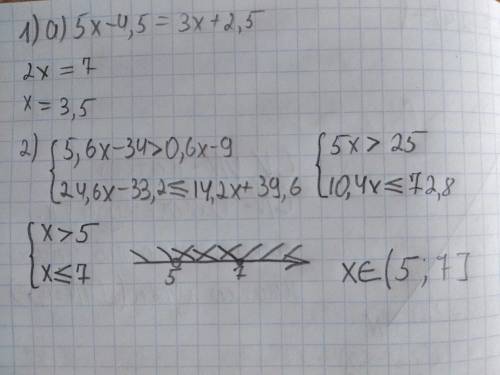 1) a) 5x-4,5=3x+2,5
2x=7
x=3,5
2) {5,6x-34>0,6x-9 {5x>25
{24,6x-33,2≤14,2x+39,6 {10,4x≤72,8
{x>5
{x≤7 5 7 x∈(5;7]